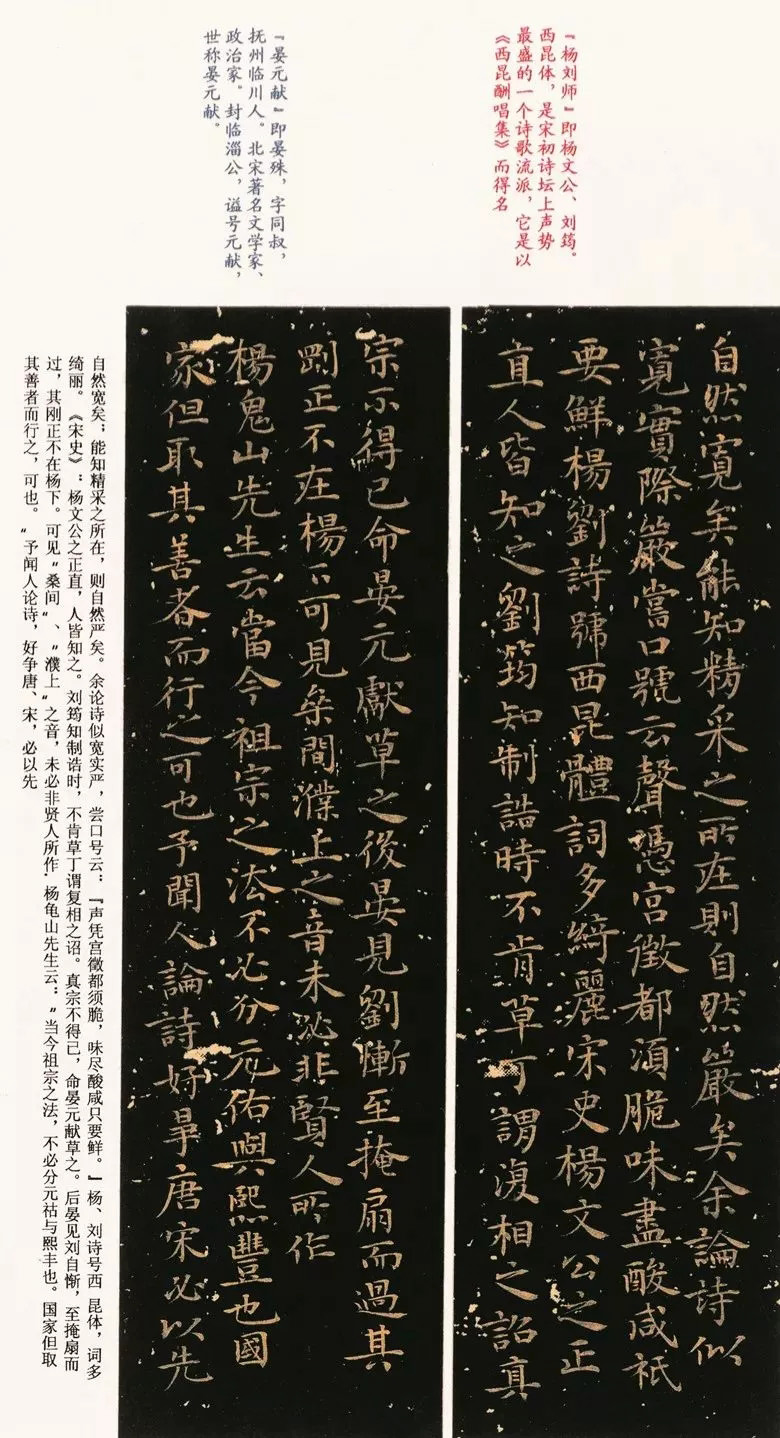 『杨刘师』即杨文公、刘筠。
西昆体，是宋初诗坛上声势
最盛的一个诗歌流派，它是以
《西昆酬唱集》而得名
『晏元献』即晏殊，字同叔，
抚州临川人。北宋著名文学家、
政治家。封临淄公，谥号元献，
世称晏元献。
自然寬矣能知精采之所在則自然嚴矣余論詩似
寬實際嚴嘗口號云聲憑宮徵都須脆味盡酸咸祇
要鮮楊劉詩號西昆體詞多綺麗宋史楊文公之正
直人皆知之劉筠知制誥時不肯草丁謂復相之詔真
宗不得已命晏元獻草之後晏見劉慚至掩扇而過其
剛正不在楊下可見桑間濮上之音未必非賢人所作
楊龜山先生云當今祖宗之法不必分元祐與熙豐也國
家但取其善者而行之可也予聞人論詩好爭唐宋必以先
自然宽矣；能知精采之所在，则自然严矣。余论诗似宽实严，尝口号云：『声凭宫徵都须脆，味尽酸咸只要鲜。』杨、刘诗号西昆体，词多
绮丽。《宋史》：杨文公之正直，人皆知之。刘筠知制诰时，不肯草丁谓复相之诏。真宗不得已，命晏元献草之。后晏见刘自惭，至掩扇而
过，其刚正不在杨下。可见“桑间”、“濮上”之音，未必非贤人所作.杨龟山先生云：“当今祖宗之法，不必分元祜与熙丰也。国家但取
其善者而行之，可也。“予闻人论诗，好争唐、宋，必以先